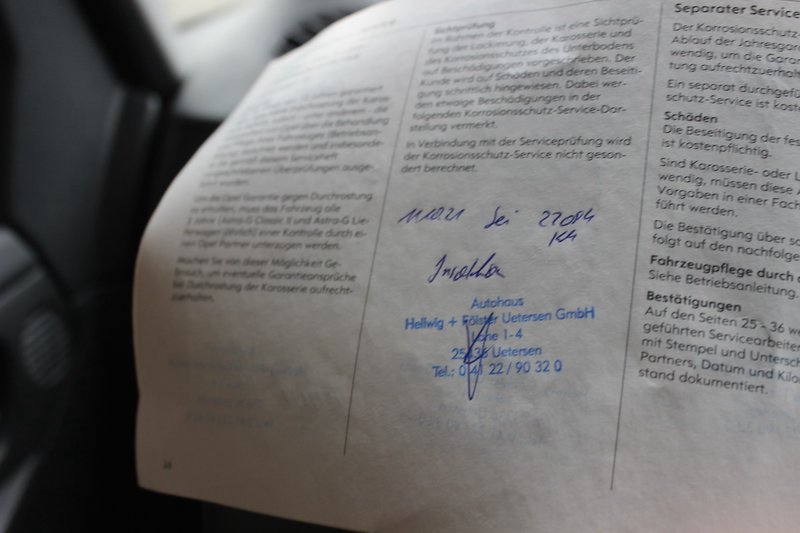 Um die Opel Garantie gegen Durchrostung
zu erhalten, muss das Fahrzeug alle
2 Jahre (Astra-G Classic II und Astra-G Lie-
ferwagen jährlich) einer Kontrolle durch ei-
nen Opel Partner unterzogen werden.
Machen Sie von dieser Möglichkeit Ge-
brauch, um eventuelle Garantieansprüche
bei Durchrostung der Karosserie aufrecht-
zuerhalten.
24
Sichtprüfung
Im Rahmen der Kontrolle ist eine Sichtprü-
fung der Lackierung, der Karosserie und
des Korrosionsschutzes des Unterbodens
auf Beschädigungen vorgeschrieben. Der
Kunde wird auf Schäden und deren Beseiti-
gung schriftlich hingewiesen. Dabei wer-
den etwaige Beschädigungen in der
folgenden Korrosionsschutz-Service-Dar-
stellung vermerkt.
In Verbindung mit der Serviceprüfung wird
der Korrosionsschutz-Service nicht geson-
dert berechnet.
11.10.21 bei 27084
KM
Inspektion
Autohaus
Hellwig + Fölster Uetersen GmbH
Höhe 1-4
25436 Uetersen
Tel.: 0 41 22 / 90 32 0
Separater Service
Der Korrosionsschutz-
Ablauf der Jahresgara
wendig, um die Garan
tung aufrechtzuerhalt
Ein separat durchgefü
schutz-Service ist kost
Schäden
Die Beseitigung der fes
ist kostenpflichtig.
Sind Karosserie- oder L
wendig, müssen diese A
Vorgaben in einer Fach
führt werden.
Die Bestätigung über sc
folgt auf den nachfolge
Fahrzeugpflege durch d
Siehe Betriebsanleitung.
Bestätigungen
Auf den Seiten 25 - 36 we
geführten Servicearbeiten
mit Stempel und Untersch
Partners, Datum und Kilo
stand dokumentiert.